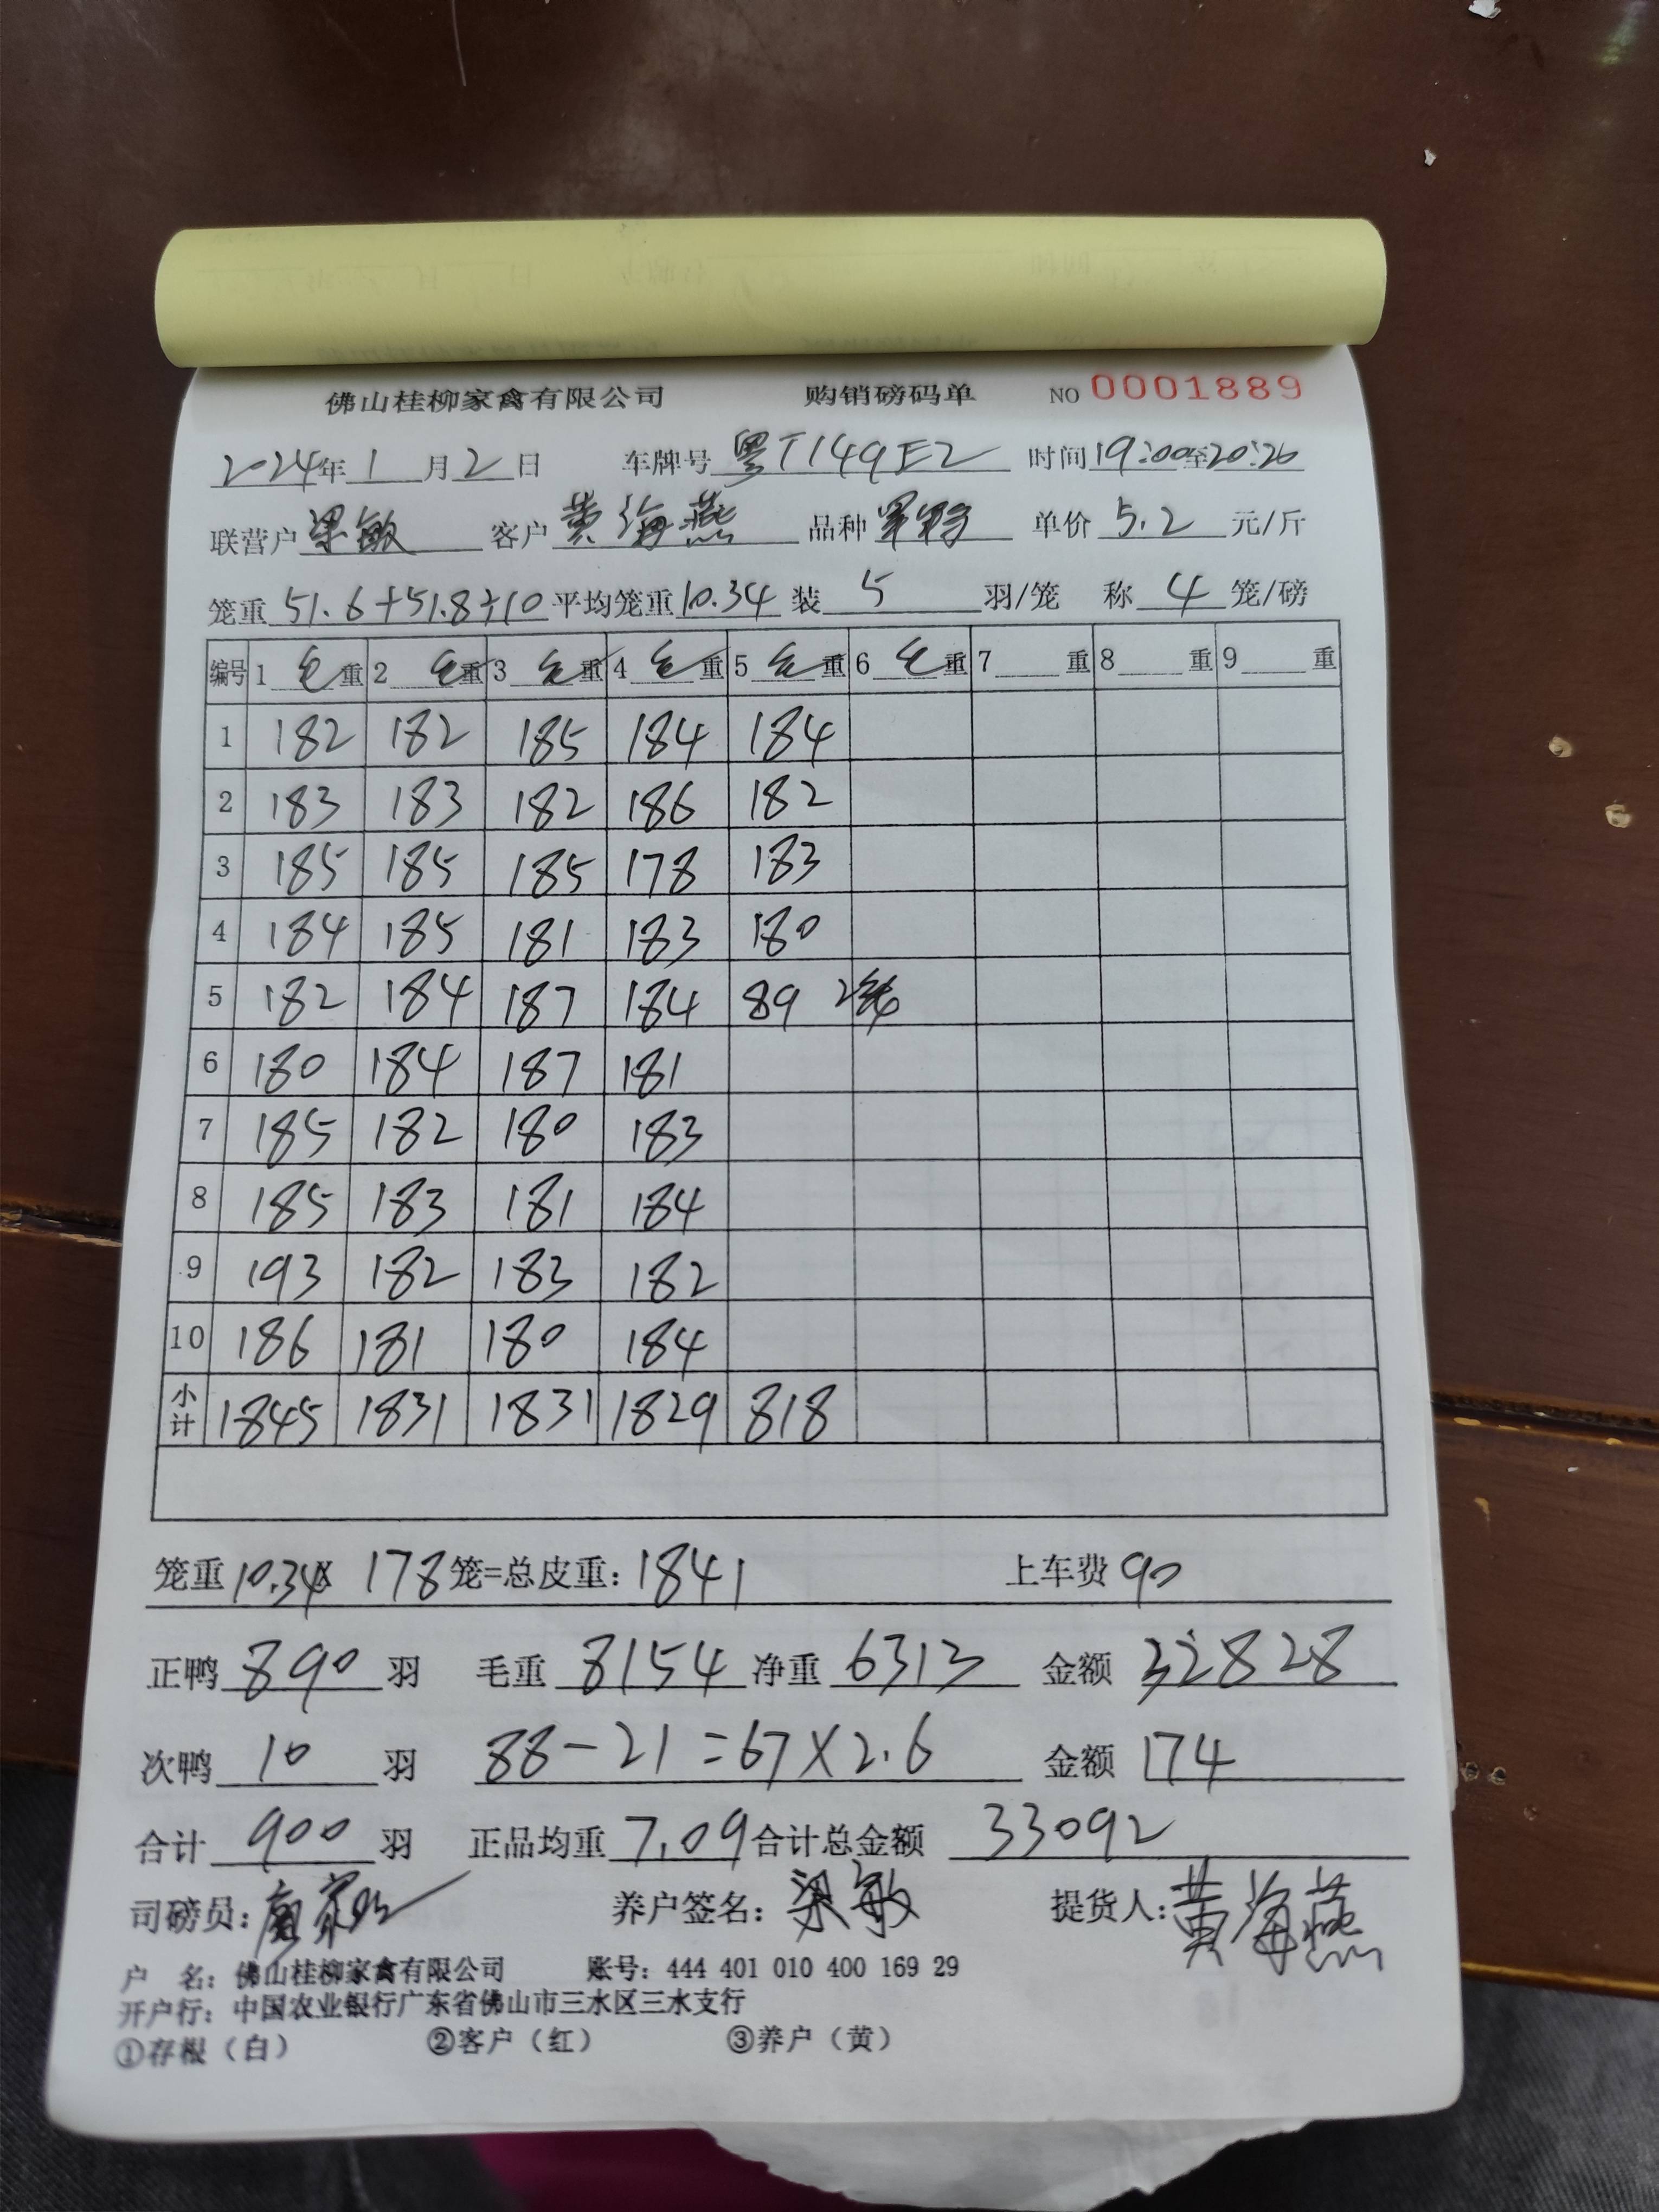 佛山桂柳家禽有限公司 购销磅码单 NO 0001889
2024年1月2日 车牌号 粤T149E2 时间19:00至20:26
联营户 梁敏 客户 黄海燕 品种 单价 5.2 元/斤
笼重 51.6+51.8÷10 平均笼重 10.34 装 5 羽/笼 称 4 笼/磅
编号 1 毛重 2 毛重 3 毛重 4 毛重 5 毛重 6 毛重 7 重 8 重 9 重
1 182 182 185 184 184
2 183 183 182 186 182
3 185 185 185 178 183
4 184 185 181 183 180
5 182 184 187 184 89 2笼
6 180 184 187 181
7 185 182 180 183
8 185 183 181 184
9 193 182 183 182
10 186 181 180 184
小计 1845 1831 1831 1829 818
笼重 10.34X 178 笼=总皮重: 1841 上车费 90
正鸭 890 羽 毛重 8154 净重 6313 金额 32828
次鸭 10 羽 88-21=67X2.6 金额 174
合计 900 羽 正品均重 7.09 合计总金额 33092
司磅员: 养户签名: 梁敏 提货人: 黄海燕
户 名: 佛山桂柳家禽有限公司 账号: 444 401 010 400 169 29
开户行: 中国农业银行广东省佛山市三水区三水支行
①存根（白） ②客户（红） ③养户（黄）